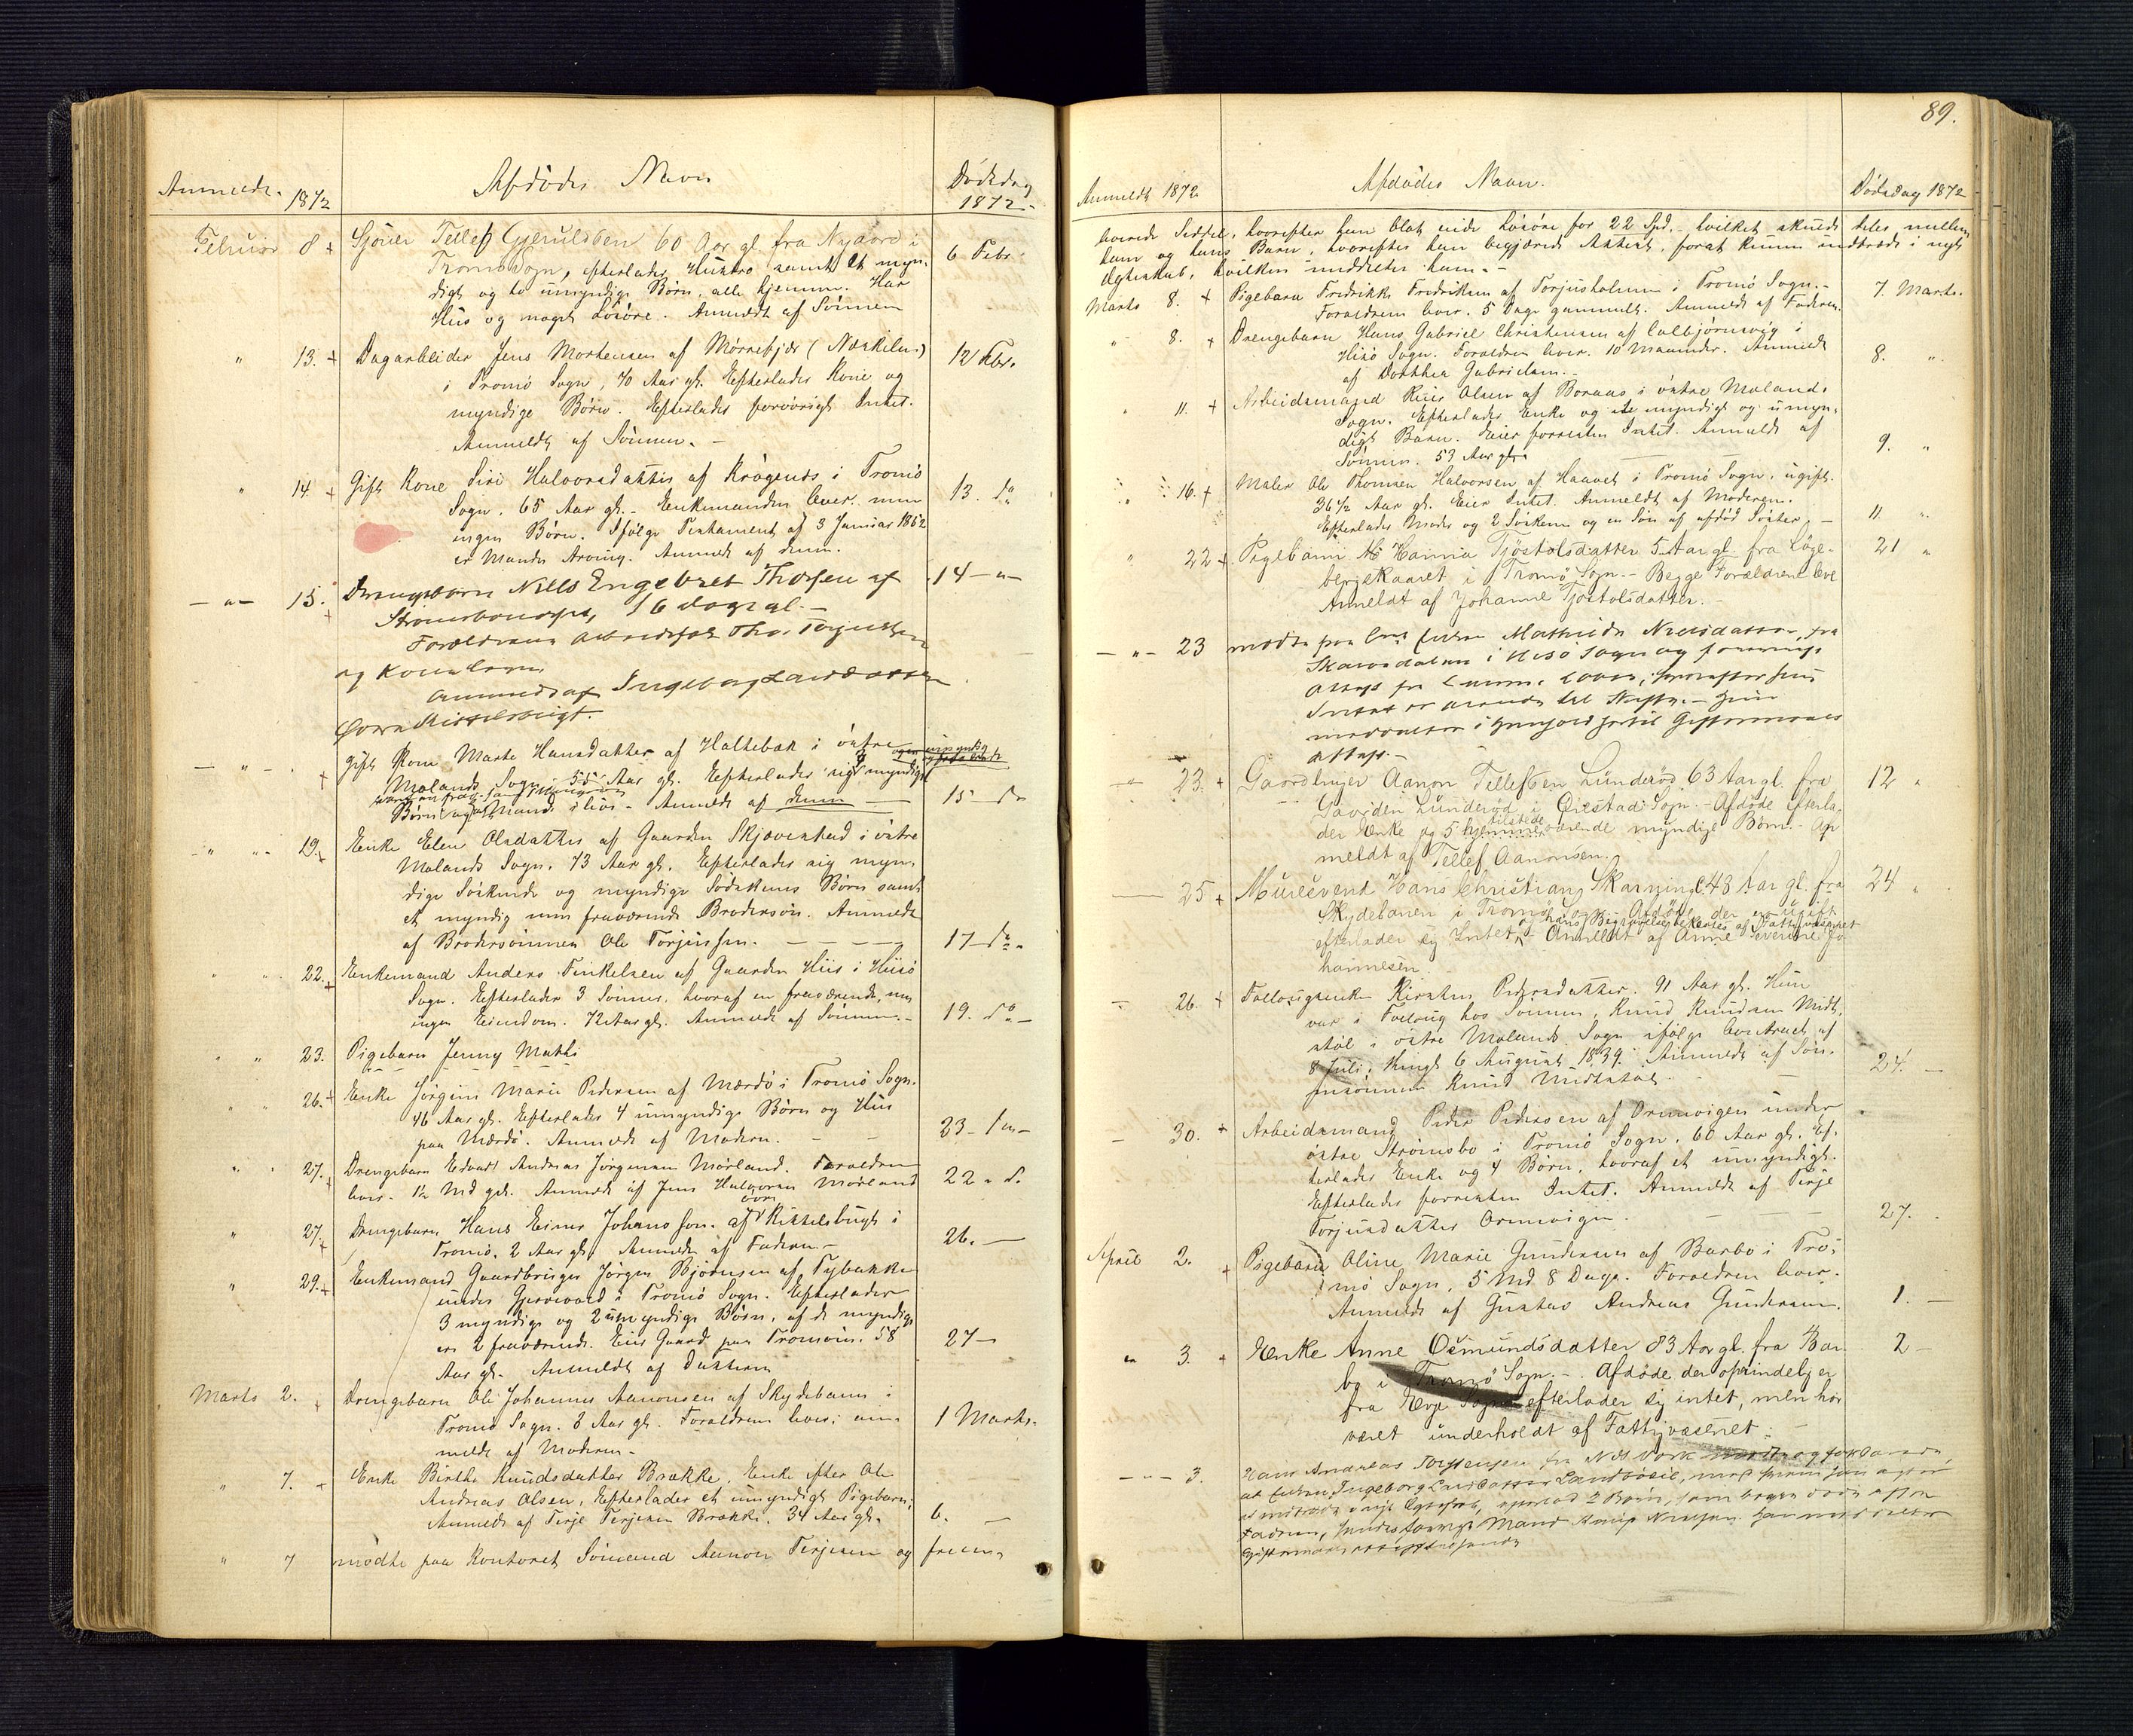 Anmeldt. 1872
Afdødes Navn
Dødsdag
1872.
Februar 8 + Sjøuer Tellef Gjeruldsen 60 Aar gl. fra Nygaard i 6 Febr.
Tromø Sogn, efterlader Hustru samt et myn-
digt og to umyndige Børn, alle hjemme. Har
Hus og noget Løsøre. Anmeldt af Sønnen
" 13. + Dagarbeider Jens Mortensen af Mørrefjær (Næskilen) 12 Febr.
i Tromø Sogn, 70 Aar gl. Efterlader Kone og
myndige Børn. Efterlader forøvrigt Intet.
Anmeldt af Sønnen. -
" 14 + Gift Kone Siri Halvorsdatter af Krøgenes i Tromø 13. do
Sogn. 65 Aar gl. - Enkemanden lever, men
ingen Børn. Ifølge Testament af 3 Januar 1862
er Manden Arving. Anmeldt af denne.
" 15. + Drengebarn Nills Engebret Thorsen af 14 - " -
Strømsbonæs, 16 dage gl. -
Forældrene Arbeidsfolk Tho. Torjussen
og Kone lever.
anmeldt af Ingeborg Larsdatter
Øvre Kittelsbugt.
- " - + gift Kone Marte Hansdatter af Holtebæk i østre
Molands Sogn. 55 Aar gl. Efterlader sig myndige
Børn og Mand i live - Anmeldt af denne 15 do
- " - 19. + Enke Elen Olsdatter af Gaarden Skjævestad i østre
Molands Sogn. 73 Aar gl. Efterlader sig myn-
dige Søskende og myndige Sødskens Børn samt
et myndig men fraværende Brodersøn. Anmeldt
af Brodersønnen Ole Torjussen. 17 do.
" " 22. + Enkemand Anders Finkelsen af Gaarden Hiis i Hisø
Sogn. Efterlader 3 Sønner, hvoraf en fraværende, men
ingen Eiendom. 72 Aar gl. Anmeldt af Sønnen. - 19. do -
" " 23. Pigebarn Jenny Mathi
" " 26. + Enke Jørgine Marie Pedersen af Mærdø i Tromø Sogn.
46 Aar gl. Efterlader 4 umyndige Børn og Hus
paa Mærdø. Anmeldt af Moderen. 23 -
" " 27. + Drengebarn Edvart Andreas Jørgensen Mørland. Forældrene
lever. 1½ Md gl. Anmeldt af Jens Halvorsen Mørland 22 " d.
" 27. + Drengebarn Hans Einer Johansson. af øvre Kittelsbugt i
Tromø. 2 Aar gl. Anmeldt af Faderen - 26. -
" 29. + Enkemand Gaardbruger Jørgen Bjørnsen af Tybakken
under Gjervold i Tromø Sogn. Efterlader
3 myndige og 2 umyndige Børn, af de myndige
ere 2 fraværende. Eier Gaard paa Tromøen. 58 27 -
Aar gl. Anmeldt af Datteren
Marts 2. + Drengebarn Ole Johannes Aanonsen af Skydebanen i
Tromø Sogn. 8 Aar gl. Forældrene lever; an- 1 Marts.
meldt af Moderen -
" 7. + Enke Birthe Knudsdatter Brække, Enke efter Ole
Andreas Olsen, Efterlader et umyndigt Pigebarn,
Anmeldt af Terje Terjesen Brække. 34 Aar gl. 6. -
" 7 mødte paa Kontoret Sømand Aanon Terjesen og frem-
89.
Anmeldt 1872
Afdødes Navn.
Dødsdag 1872
leverede Seddel, hvorefter han blot eide Løsøre for 22 Spd. hvilket skulde deles mellem
ham og hans Barn, hvorefter han begjærede Attest, forat kunne indtræde i nyt
Ægteskab, hvilken meddeltes ham. -
Marts 8. + Pigebarn Fredrikke Fredriksen af Torjusholmen i Tromø Sogn. - 7 Marts.
Forældrene lever. 5 Dage gammelt. Anmeldt af Faderen.
" 8. + Drengebarn Hans Gabriel Christensen af Colbjørnsvig i
Hisø Sogn. Forældrene lever. 10 Maaneder. Anmeldt 8. "
af Dorthea Gabrielsen. -
" 11. + Arbeidsmand Reier Olsen af Boraas i østre Molands
Sogn. Efterlader Enke og ete myndigt og umyn-
digt Barn. Eier forresten Intet. Anmeldt af 9. "
Sønnen. 53 Aar gl.
" 16. + Maler Ole Thomsen Halvorsen af Haavet i Tromø Sogn, ugift.
36½ Aar gl. Eier Intet. Anmeldt af Moderen.
Efterlader Moder og 2 Søskende og en Søn af afdød Søster. - 11. "
" 22 + Pigebarn Hanna Tjøstolsdatter 5 Aar gl. fra Løge- 21 "
bergekaaret i Tromø Sogn. - Begge Forældrene leve
Anmeldt af Johanne Tjøstolsdatter. -
- " - 23 mødte paa Ctrt Enken Mathilde Nielsdatter, fra
i Hisø Sogn og fremviste
Attest fra
Intet er at skifte. - Hun
meddeltes i Henhold hertil Giftermaals
attest. -
- " - 23. + Gaardbruger Aanon Tellefsen Lunderød 63 Aar gl. fra 12 "
Gaarden Lunderød i Øiestad Sogn. - Afdøde efterla-
der Enke og 5 tilstede værende myndige Børn. - An-
meldt af Tellef Aanonsen.
25 + Muresvend Hans Christian Skarning 48 Aar gl. fra 24 "
Skydebanen i Tromø Sogn. Afdøde, der er ugift
efterlader sig Intet, hans Begravelse bekostes af Fattigvæsenet. Anmeldt af Anne Severine Jo-
hannesen.
- 26. + Follougsenke Kirsten Pedersdatter. 91 Aar gl. Hun
var i Follaug hos Sønnen, Knud Knudsen Midt-
støl i østre Molands Sogn ifølge Contract af
8 Juli, thingl. 6 August 1839. Anmeldt af Søn- 24. -
nesønnen Knud Midtstøl.
- 30. + Arbeidsmand Peder Pedersen af Ormevigen under
østre Strømsbo i Tromø Sogn. 60 Aar gl. Ef-
terlader Enke og 4 Børn, hvoraf et umyndigt.
Efterlader forresten Intet. Anmeldt af Terje
Torjusdatter Ormevigen. 27. -
April 2. + Pigebarn Aline Marie Gundersen af Barbo i Tro-
mø Sogn. 5 Md. 8 Dage. Forældrene lever.
Anmeldt af Gustav Andreas Gundersen. 1. -
" 3. + Enke Anne Osmundsdatter 83 Aar gl. fra Bar- 2 -
bo i Tromø Sogn. - Afdøde der oprindelig er
fra Evje Sogn efterlader sig intet, men har
været underholdt af Fattigvæsenet. -
- " - 3. Hans Andreas Torstensen fra og forklarede,
at Enken, Ingeborg Larsdatter med hvem han agter
at indtræde i nyt Ægteskab, 2 Børn, som begge døde efter
Faderen, hendes forrige Mand